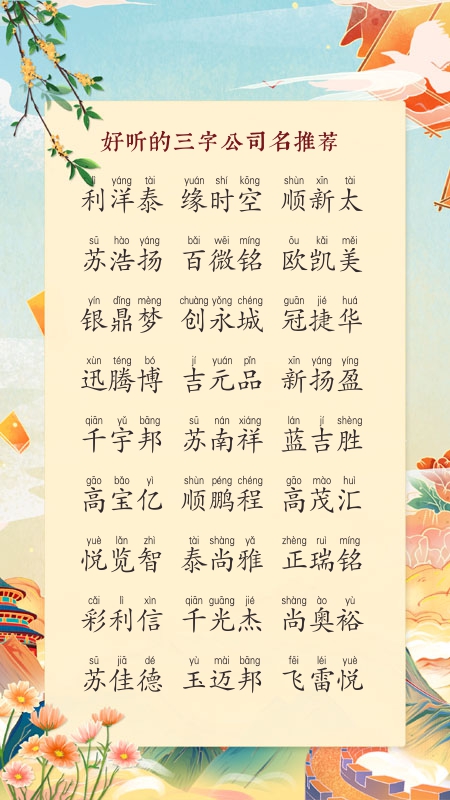 好听的三字公司名推荐
lì yáng tài yuán shí kōng shùn xīn tài
利洋泰 缘时空 顺新太
sū hào yáng bǎi wēi míng ōu kǎi měi
苏浩扬 百微铭 欧凯美
yín dǐng mèng chuàng yǒng chéng guān jié huá
银鼎梦 创永城 冠捷华
xùn téng bó jí yuán pǐn xīn yáng yíng
迅腾博 吉元品 新扬盈
qiān yǔ bāng sū nán xiáng lán jí shèng
千宇邦 苏南祥 蓝吉胜
gāo bǎo yì shùn péng chéng gāo mào huì
高宝亿 顺鹏程 高茂汇
yuè lǎn zhì tài shàng yǎ zhèng ruì míng
悦览智 泰尚雅 正瑞铭
cǎi lì xìn qiān guāng jié shàng ào yù
彩利信 千光杰 尚奥裕
sū jiā dé yù mài bāng fēi léi yuè
苏佳德 玉迈邦 飞雷悦